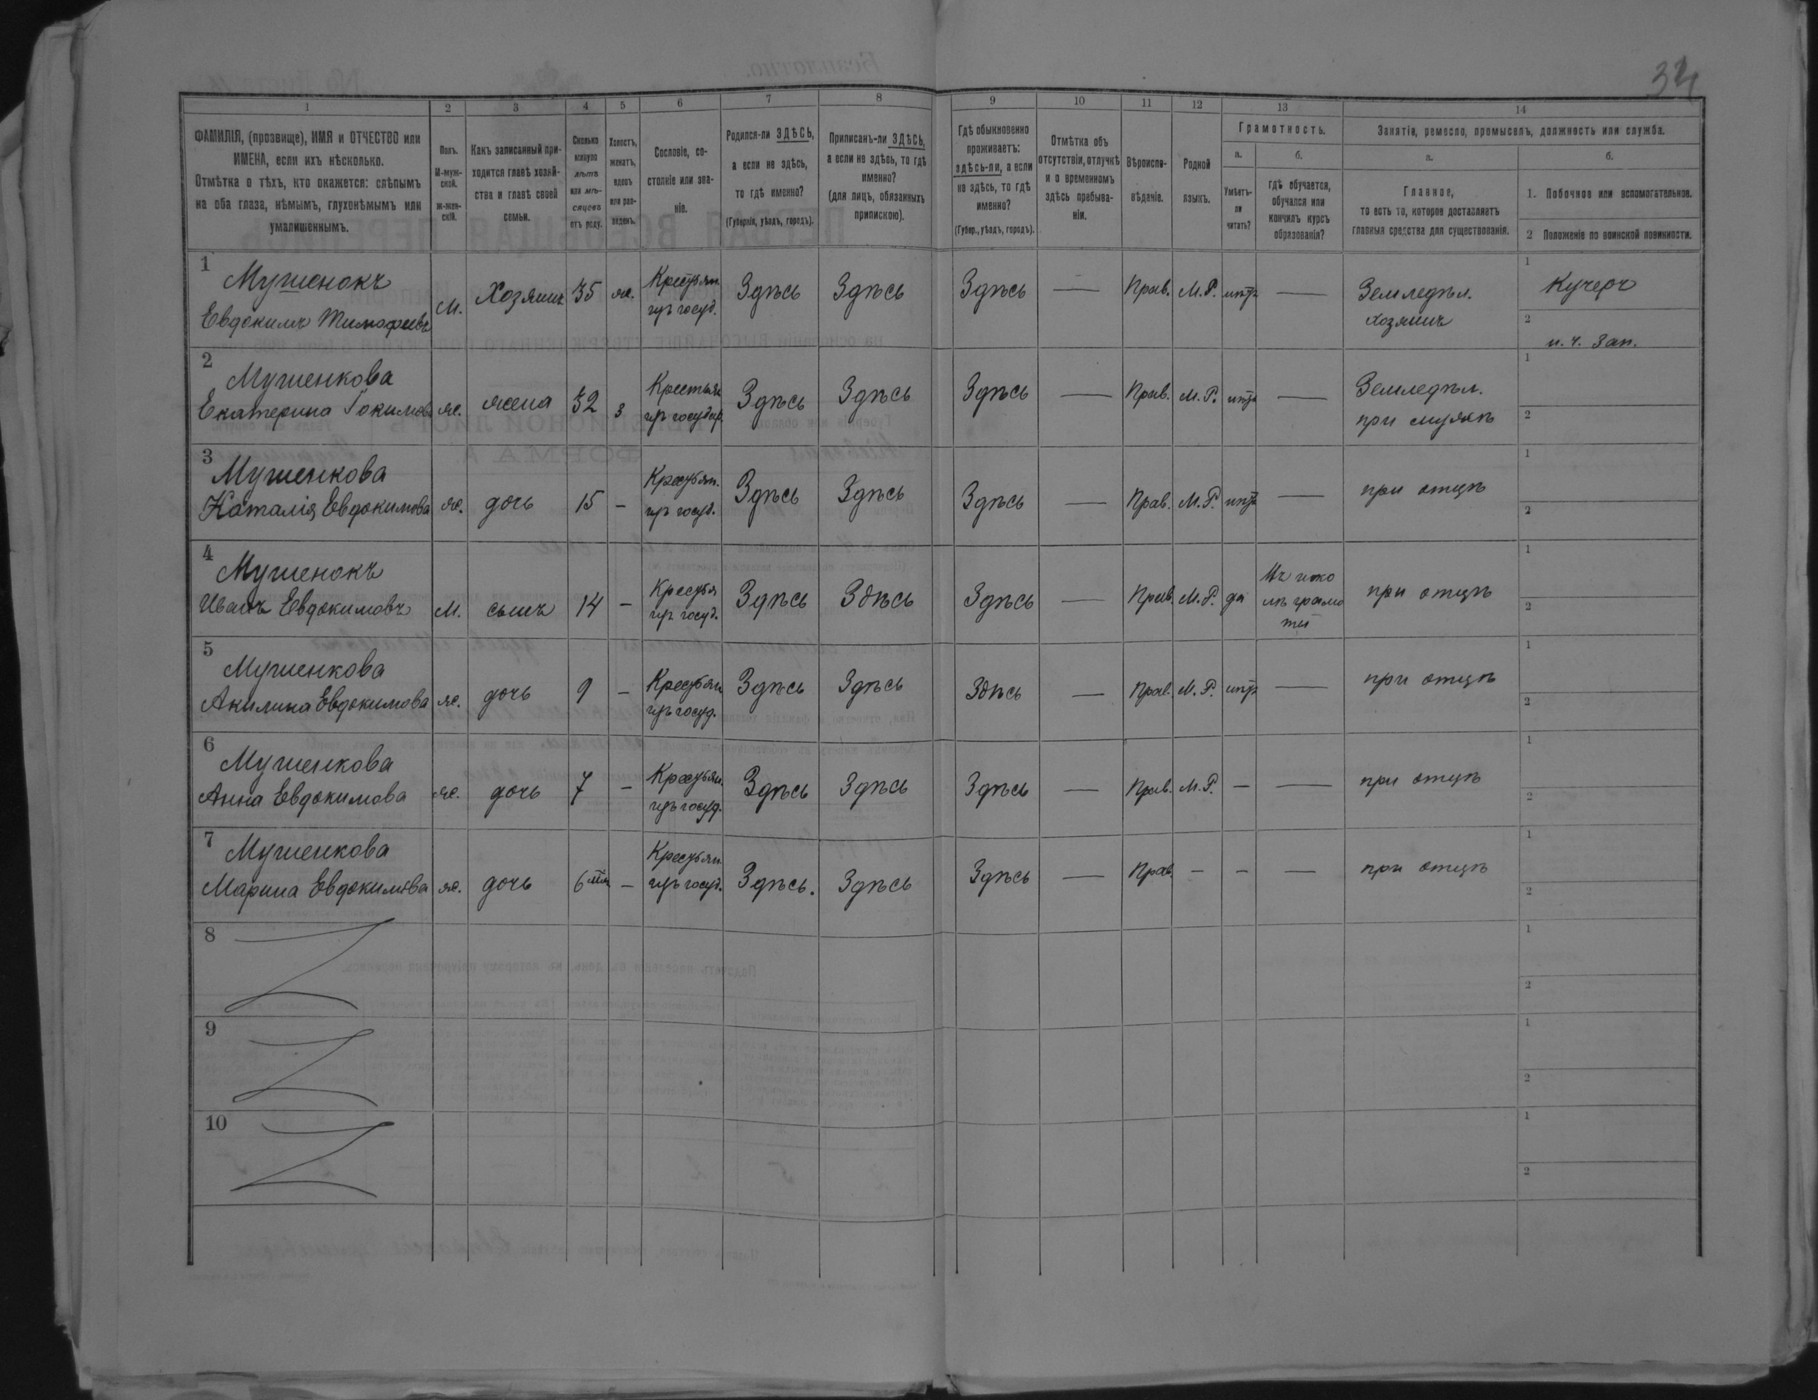 34
1 2 3 4 5 6 7 8 9 10 11 12 13 14
ФАМИЛІЯ, (прозвище), ИМЯ и ОТЧЕСТВО или ИМЕНА, если ихъ нѣсколько.
Отмѣтка о тѣхъ, кто окажется: слѣпымъ на оба глаза, нѣмымъ, глухонѣмымъ или умалишеннымъ.
Полъ. М-муж-ской. ж-жен-скій.
Какъ записанный при-ходится главѣ хозяй-ства и главѣ своей семьи.
Сколько минуло лѣтъ или мѣ-сяцевъ отъ роду.
Холостъ, женатъ, вдовъ или раз-веденъ.
Сословіе, со-стояніе или зва-ніе.
Родился-ли ЗДѢСЬ, а если не здѣсь, то гдѣ именно?
(Губернія, уѣздъ, городъ).
Приписанъ-ли ЗДѢСЬ, а если не здѣсь, то гдѣ именно?
(для лицъ, обязанныхъ припискою).
Гдѣ обыкновенно проживаетъ: здѣсь-ли, а если не здѣсь, то гдѣ именно?
(Губер., уѣздъ, городъ).
Отмѣтка объ отсутствіи, отлучкѣ и о временномъ здѣсь пребыва-ніи.
Вѣроиспо-вѣданіе.
Родной языкъ.
Грамотность.
а. Умѣетъ-ли читать?
б. гдѣ обучается, обучался или кончилъ курсъ образованія?
Занятія, ремесло, промыселъ, должность или служба.
а. Главное, то есть то, которое доставляетъ главныя средства для существованія.
б.
1. Побочное или вспомогательное.
2 Положеніе по воинской повинности.
1 Мушенокъ Евдокимъ Тимофеевъ М. Хозяинъ 35 ж. Крестьян изъ госуд. Здѣсь Здѣсь Здѣсь — Прав. М.Р. нѣтъ — Земледѣл. хозяинъ 1 Кучеръ 2 и. ч. зап.
2 Мушенкова Екатерина ж. жена 32 з Крестьян изъ государ Здѣсь Здѣсь Здѣсь — Прав. М.Р. нѣтъ — Земледѣл. при мужѣ 1 2
3 Мушенкова Наталія Евдокимова ж. дочь 15 – Крестьян. изъ госуд. Здѣсь Здѣсь Здѣсь — Прав. М.Р. нѣтъ — при отцѣ 1 2
4 Мушенокъ Иванъ Евдокимовъ М. сынъ 14 – Крестья изъ госуд. Здѣсь Здѣсь Здѣсь — Прав. М.Р. да Въ шко лѣ грамо ты при отцѣ 1 2
5 Мушенкова Акилина Евдокимова ж. дочь 9 – Крестьян изъ госуд. Здѣсь Здѣсь Здѣсь — Прав. М.Р. нѣтъ — при отцѣ 1 2
6 Мушенкова Анна Евдокимова ж. дочь 7 – Крестьян. изъ госуд. Здѣсь Здѣсь Здѣсь — Прав. М.Р. – — при отцѣ 1 2
7 Мушенкова Марина Евдокимова ж. дочь 6 – Крестьян. изъ госуд. Здѣсь. Здѣсь Здѣсь — Прав. – – — при отцѣ 1 2
8 1 2
9 1 2
10 1 2